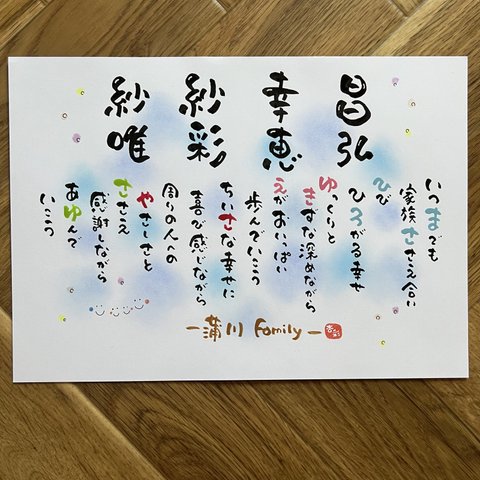 昌弘
幸恵
紗彩
紗唯
いつまでも
家族ささえ合い
ひび
ひろがる幸せ
ゆっくりと
きずな深めながら
えがおいっぱい
歩んでいこう
ちいさな幸せに
喜び感じながら
周りの人への
やさしさと
ささえ
感謝しながら
あゆんで
いこう
ー蒲川 Familyー